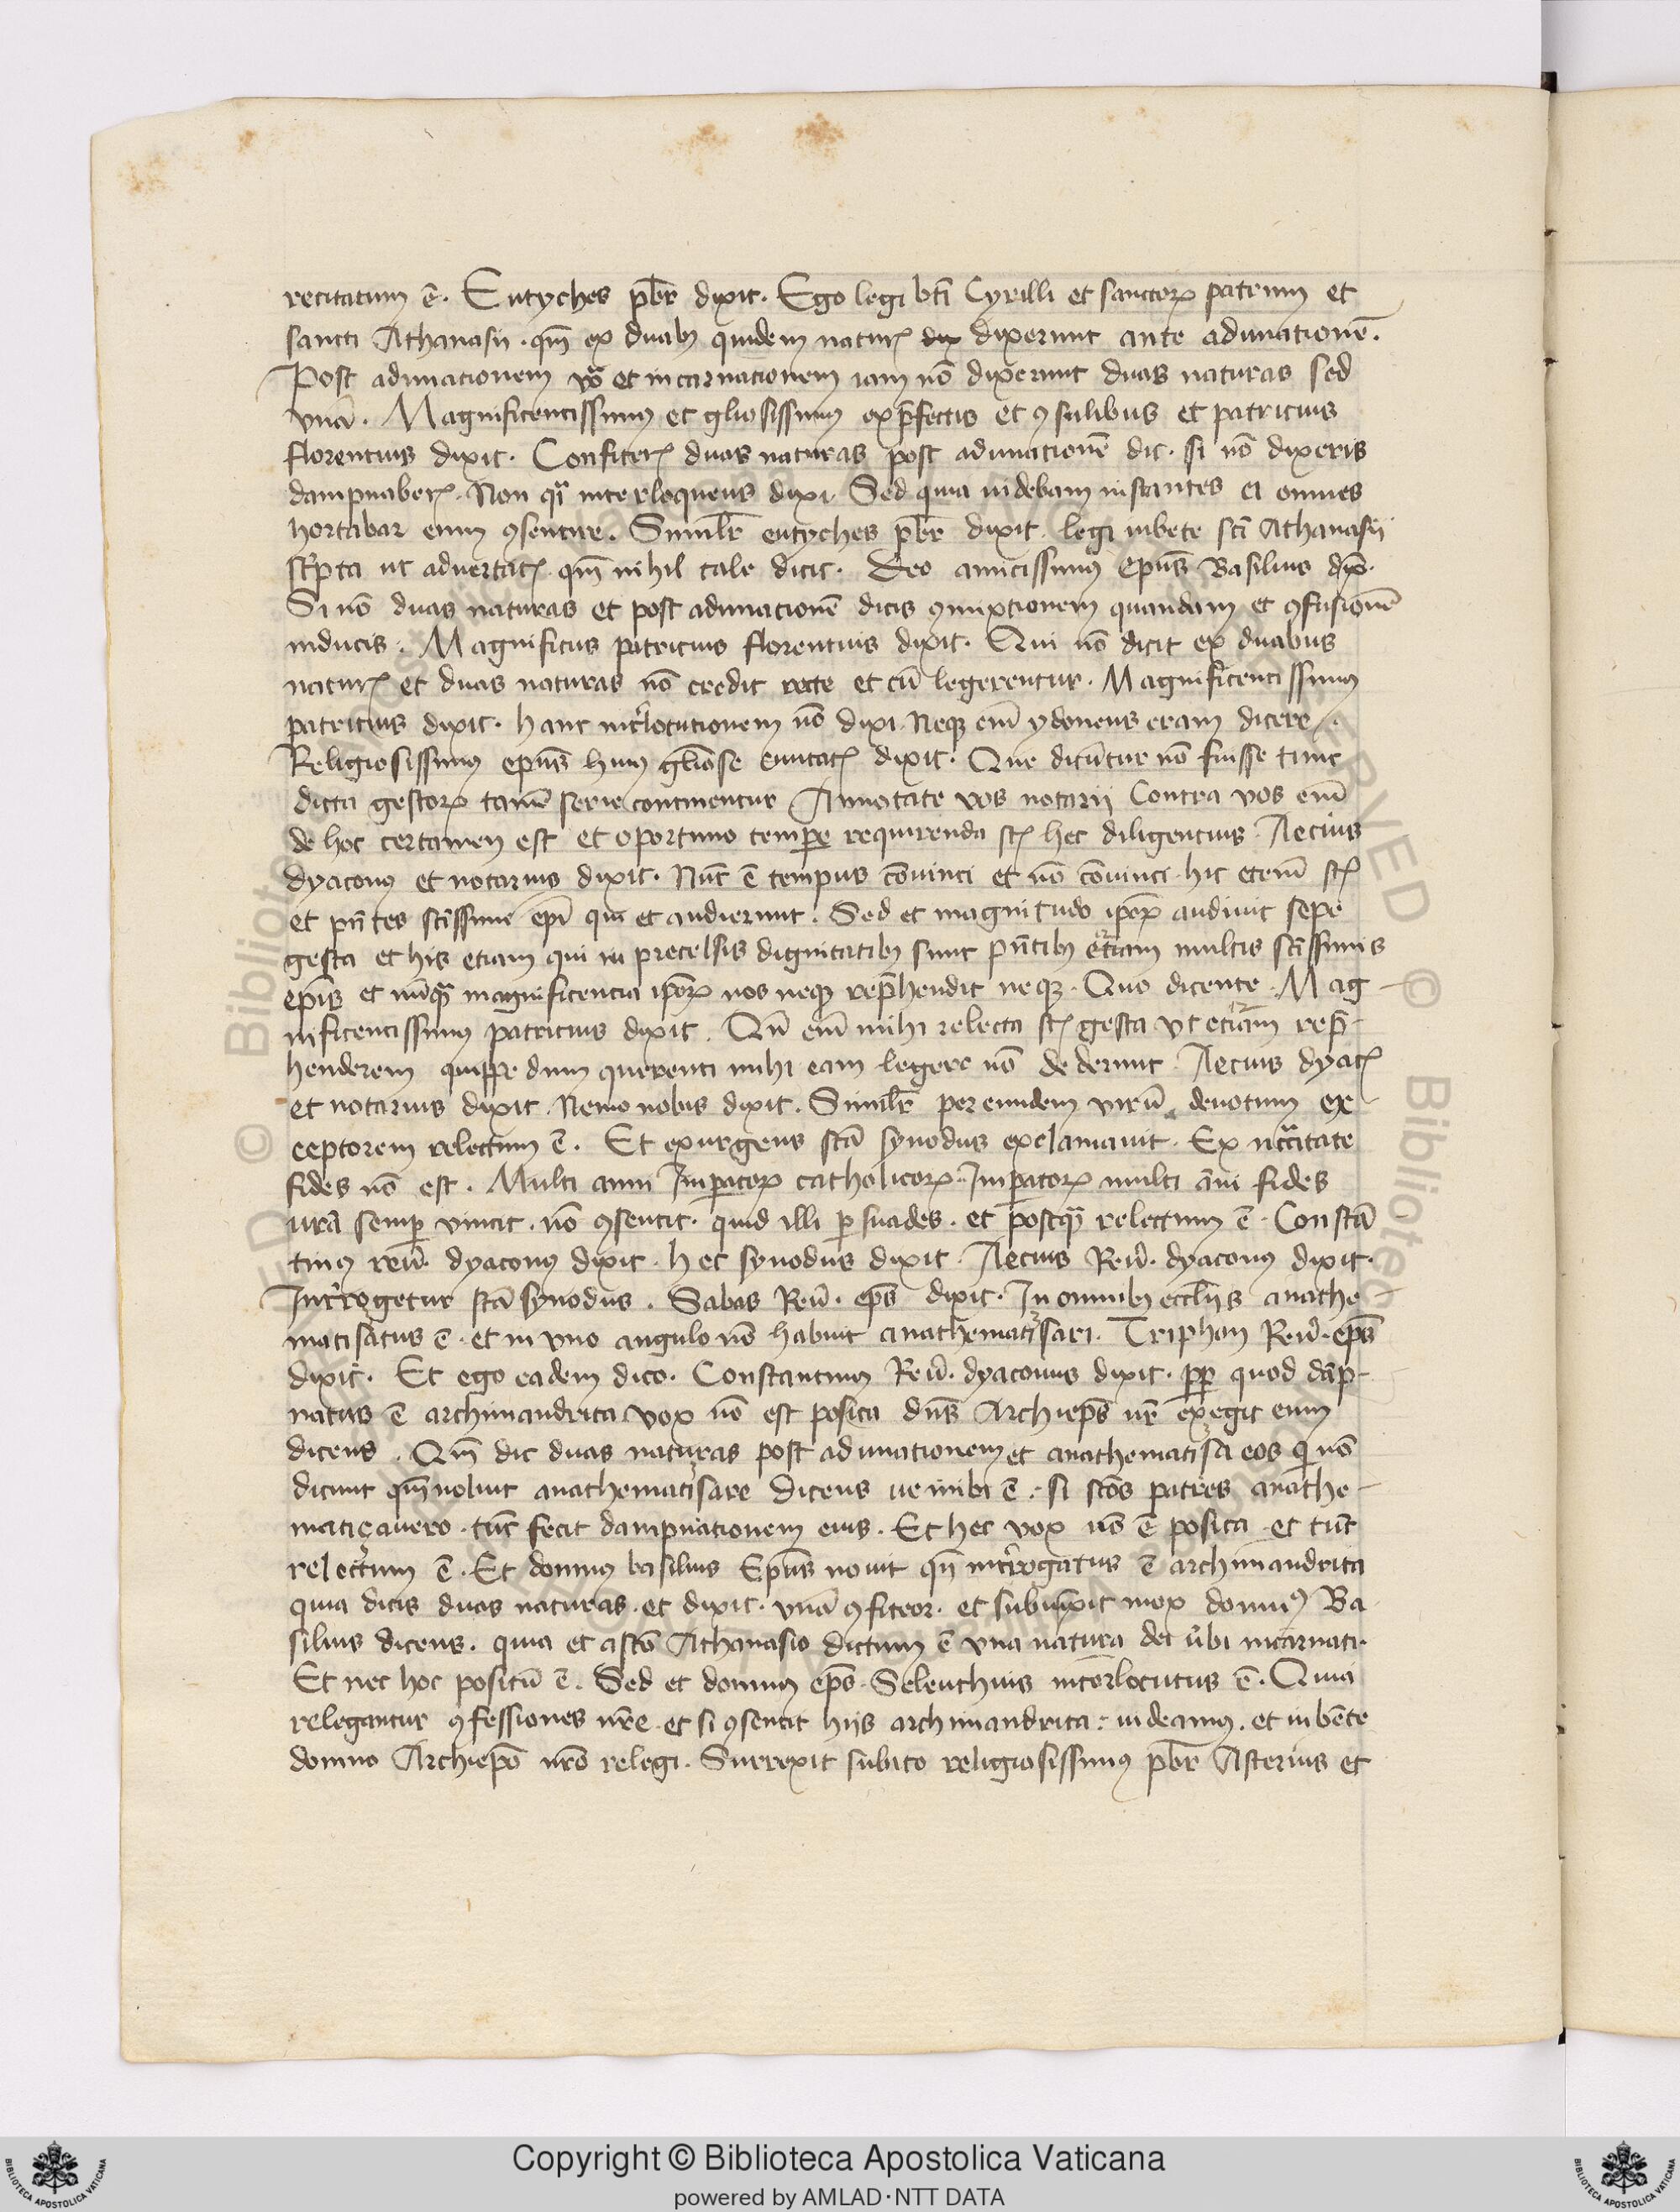 recitatum ē. Eutyches pbr̄ dixit. Ego legi bt̄i Cyrilli et sanctoꝝ patrum et
sancti Athanasii. qm̄ ex duabꝫ quidem naturꝭ dix dixerunt ante adunationē.
Post adunationem vo͛ et incarnationem iam nō dixerunt duas naturas sed
vnā. Magnificentissimꝰ et gl̄iosissimꝰ exp̄fectis et ꝯsulibus et patricius
florentius dixit. Confiterꝭ duas naturas post adunationē dic. si nō dixeris
dampnaberꝭ. Non qͣ interloquens dixi. Sed quia uidebam instantes ei omnes
hortabar eum ꝯsentire. Simil̄r eutyches pbr̄ dixit. legi iubete sc̄i Athanasii
sc͛pta ut aduertatꝭ. qm̄ nihil tale dicit. Deo amicissimꝰ ep̄us Basilius dix̄.
Si nō duas naturas et post adunationē dicis ꝯmixtionem quandam et ꝯfusionē
inducis. Magnificus patricius florentius dixit. Qui nō dicit ex duabus
naturꝭ et duas naturas nō credit recte et cū legerentur. Magnificentissimꝰ
patricius dixit. hanc int͛locutionem nō dixi. Neqꝫ em̄ ydoneus eram dicere.
Religiosissimꝰ ep̄us huiꝰ gl̄iose ciuitatꝭ dixit. Que dicūtur nō fuisse tunc
dicta gestoꝝ tamē serie continentur Annotate vos notarij Contra vos em̄
de hoc certamen est et oportuno tempe requirenda st̄ hec diligentius. Aecius
dyaconꝰ et notarius dixit. Nūc ē tempus cōuinci et nō cōuinci. hic etem̄ st̄
et pn̄tes sc̄issimi ep̄i qui et audierunt. Sed et magnitudo ip̄oꝝ audiuit sepe
gesta et his etiam qui in precelsis dignitatibꝫ sunt pn̄tibꝫ etiam multis sc̄issimis
ep̄is et nūqͣ magnificencia ip̄oꝝ nos neqꝫ rep̄hendit neqꝫ. Quo dicente. Mag-
nificentissimus patricius dixit. Qn̄ em̄ mihi relecta st̄ gesta vt etiam rep̄-
henderem quippe dum querenti mihi eam legere nō dederunt. Aecius dyacꝭ
et notarius dixit. Nemo nobis dixit. Simil̄r per eundem virū deuotum ex-
ceptorem relectum ē. Et exurgens sc̄a synodus exclamauit. Ex nc̄citate
fides nō est. Multi anni Impatoꝝ catholicoꝝ. Impatoꝝ multi āni fides
ur̄a semp vincit. nō ꝯsentit. quid illi psuades. et postqͣ relectum ē. Constā
tinꝰ reū. dyaconꝰ dixit. hec synodus dixit. Aecius Reū. dyaconꝰ dixit.
Int͛rogetur sc̄a synodus. Sabas Reū. ep̄s dixit. In omnibꝫ eccl̄ijs anathe-
matisatus ē. et in vno angulo nō habuit anathematisari. Triphon Reū. ep̄s
dixit. Et ego eadem dico. Constantinꝰ Reū. dyaconus dixit. pp quod dāp-
natus ē archimandrita vox nō est posita dn̄s Archiep̄s nr̄ exegit eum
dicens. Qm̄ dic duas naturas post adunationem et anathematisa eos qͥ nō
dicunt qm̄ noluit anathematisare dicens ue mihi ē. si sc̄os patres anathe-
matiçauero. tūc fecit dampnationem eius. Et hec vox nō ē posita. et tūc
relectum ē. Et domnꝰ basilius Ep̄us nouit qn̄ int͛rogatus ē archimandrita
quia dicis duas naturas. et dixit. vnā ꝯfiteor. et subiunxit mox domnꝰ Ba
silius dicens. quia et a sc̄o Athanasio dictum ē vna natura dei u͛bi incarnati.
Et nec hoc positū ē. Sed et domnus ep̄s. Seleuchius int͛locutus ē. Quia
relegantur ꝯfessiones nr̄e. et si ꝯsentit hijs archimandrita: uideamꝰ. et iubēte
domno Archiep̄o nr̄o relegi. Surrexit subito religiosissimꝰ pbr̄ Asterius et
Copyright © Biblioteca Apostolica Vaticana
powered by AMLAD·NTT DATA